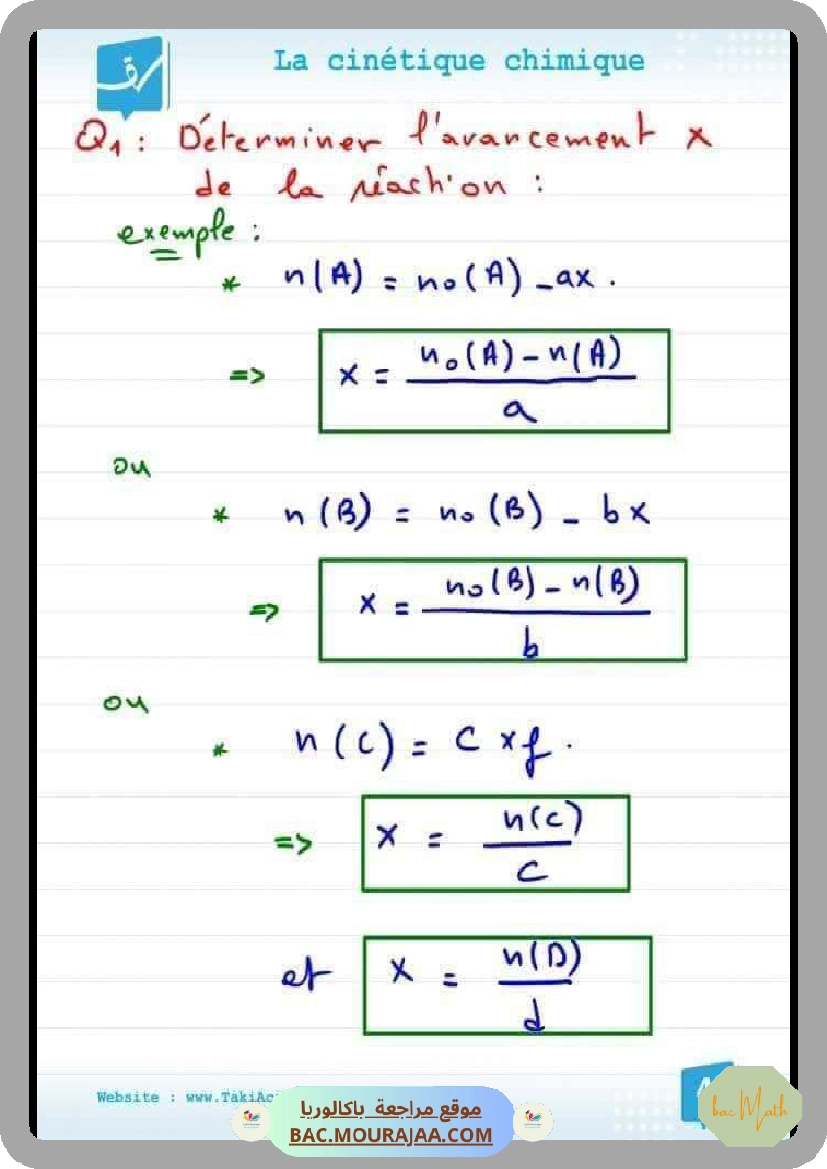 La cinétique chimique
Q1 : Déterminer l'avancement x
de la réaction :
exemple :
* n(A) = n₀(A) - ax .
=> x = (n₀(A) - n(A)) / a
ou
* n(B) = n₀(B) - bx
=> x = (n₀(B) - n(B)) / b
ou
* n(C) = C xf .
=> x = n(C) / C
et x = n(D) / d
Website : www.TakiAc
موقع مراجعة باكالوريا
BAC.MOURAJAA.COM
bac Math